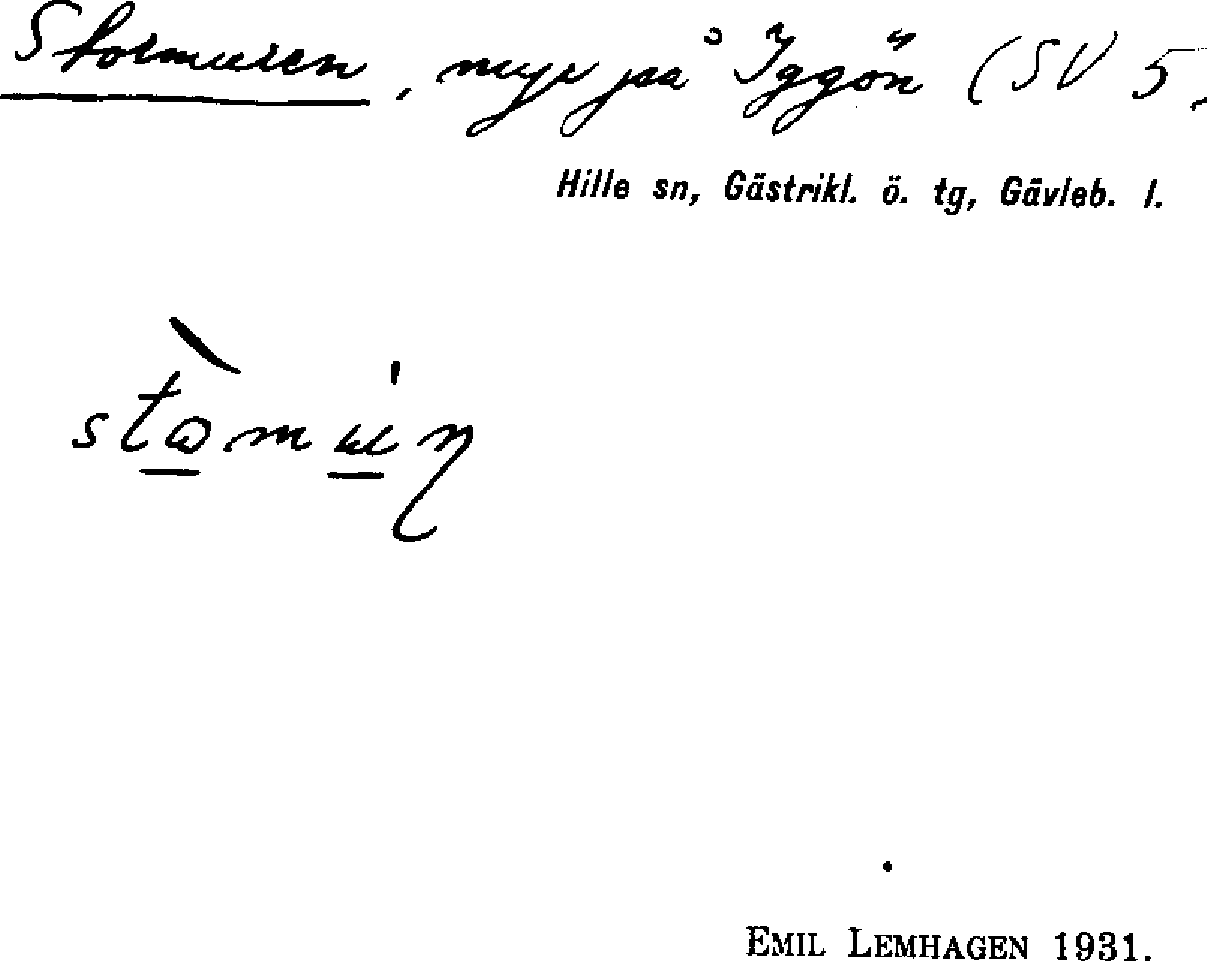 Stormuren, myr på Iggön (SV 5,
Hille sn, Gästrikl. ö. tg, Gävleb. l.
EMIL LEMHAGEN 1931.